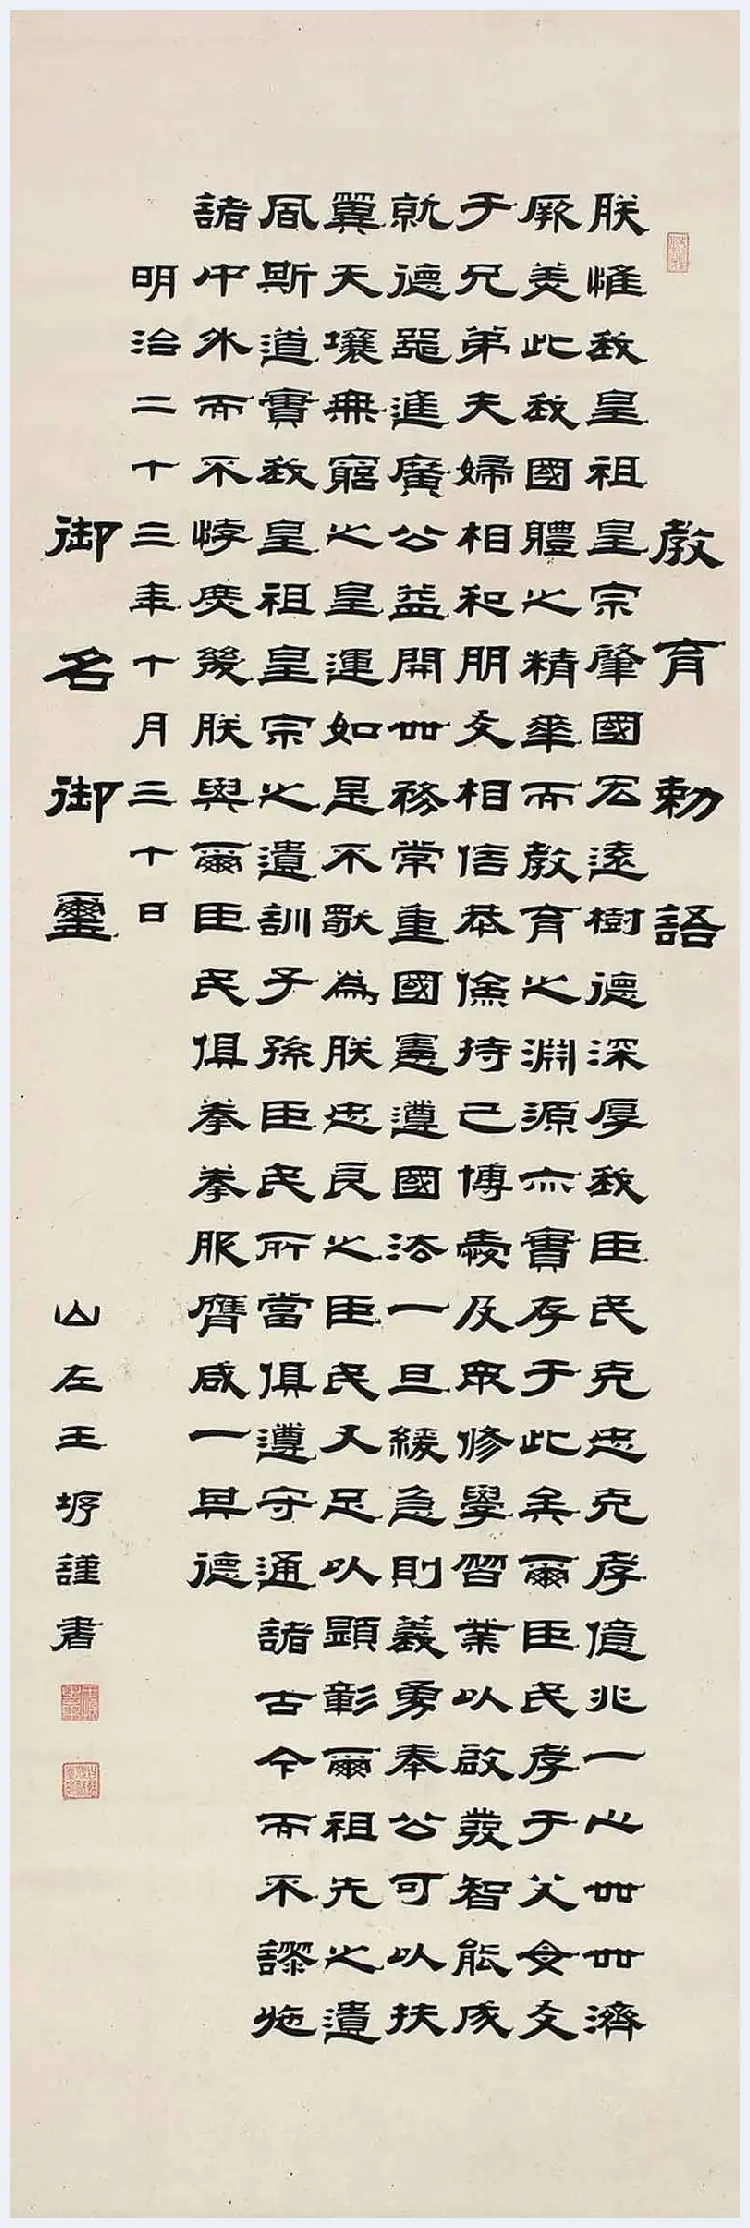 教育勅語
朕惟我皇祖皇宗肇國宏遠樹德深厚我臣民克忠克孝億兆一心世世濟
厥美此我國體之精華而教育之淵源亦實存于此矣爾臣民孝于父母友
于兄弟夫婦相和朋友相信恭儉持己博愛及眾修學習業以啟發智能成
就德器進廣公益開世務常重國憲遵國法一旦緩急則義勇奉公可以扶
翼天壤無窮之皇運如是不獨為朕忠良之臣民又足以顯彰爾祖先之遺
風斯道實我皇祖皇宗之遺訓子孫臣民所當俱遵守通諸古今而不謬施
諸中外而不悖庶幾朕與爾臣民俱拳拳服膺咸一其德
明治二十三年十月三十日
御名御璽
山左王垿謹書